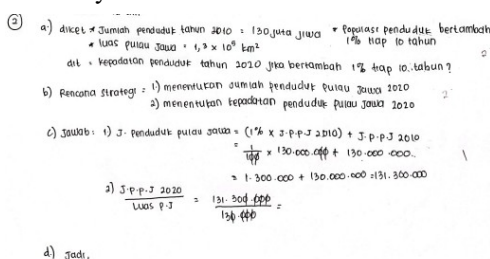 ② a.) diket * Jumlah penduduk tahun 2010 = 130 juta jiwa * Populasi penduduk bertambah
* luas pulau Jawa = 1,3 x 10⁵ km² 1% tiap 10 tahun
dit = kepadatan penduduk tahun 2020 jika bertambah 1% tiap 10 tahun? 2
b) Rencana strategi = 1) menentukan jumlah penduduk pulau Jawa 2020
2) menentukan kepadatan penduduk pulau Jawa 2020 2
c) Jawab: 1) J. penduduk pulau Jawa = (1% x J.P.P.J 2010) + J.P.P.J 2010
= 1/100 x 130.000.000 + 130.000.000. 1
= 1.300.000 + 130.000.000 = 131.300.000
2) J.P.P.J 2020 / Luas P.J = 131.300.000 / 130.000 =
d.) Jadi,